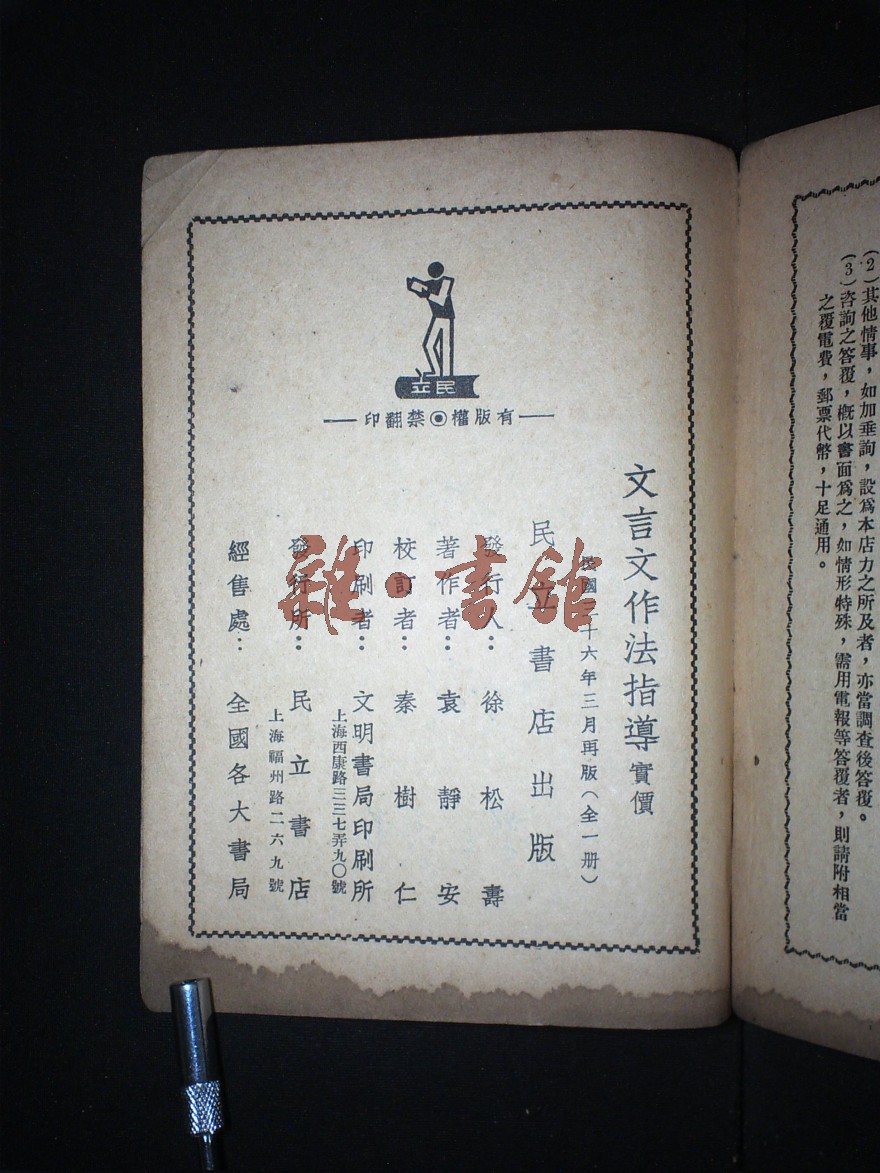 (2)其他情事，如加垂詢，設爲本店力之所及者，亦當調查後答覆。
(3)咨詢之答覆，概以書面爲之，如情形特殊，需用電報等答覆者，則請附相當
之覆電費，郵票代幣，十足通用。
立民
印翻禁◉權版有
文言文作法指導 實價
民國三十六年三月再版(全一册)
民立書店出版
發行人：徐松壽
著作者：袁靜安
校訂者：秦樹仁
印刷者：文明書局印刷所
上海西康路三三七弄九〇號
發行所：民立書店
上海福州路二六九號
經售處：全國各大書局
雜·書館